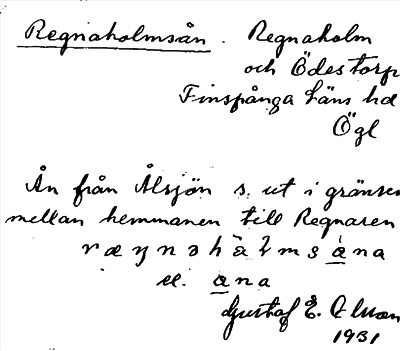 Regnaholmsån. Regnaholm
och Ödestorp
Finspånga läns hd
Ögl
Ån från Ålsjön s. ut i gränsen
mellan hemmanen till Regnaren
ræŋnəhàlmsàna
el. ana
Gustaf E.
1931